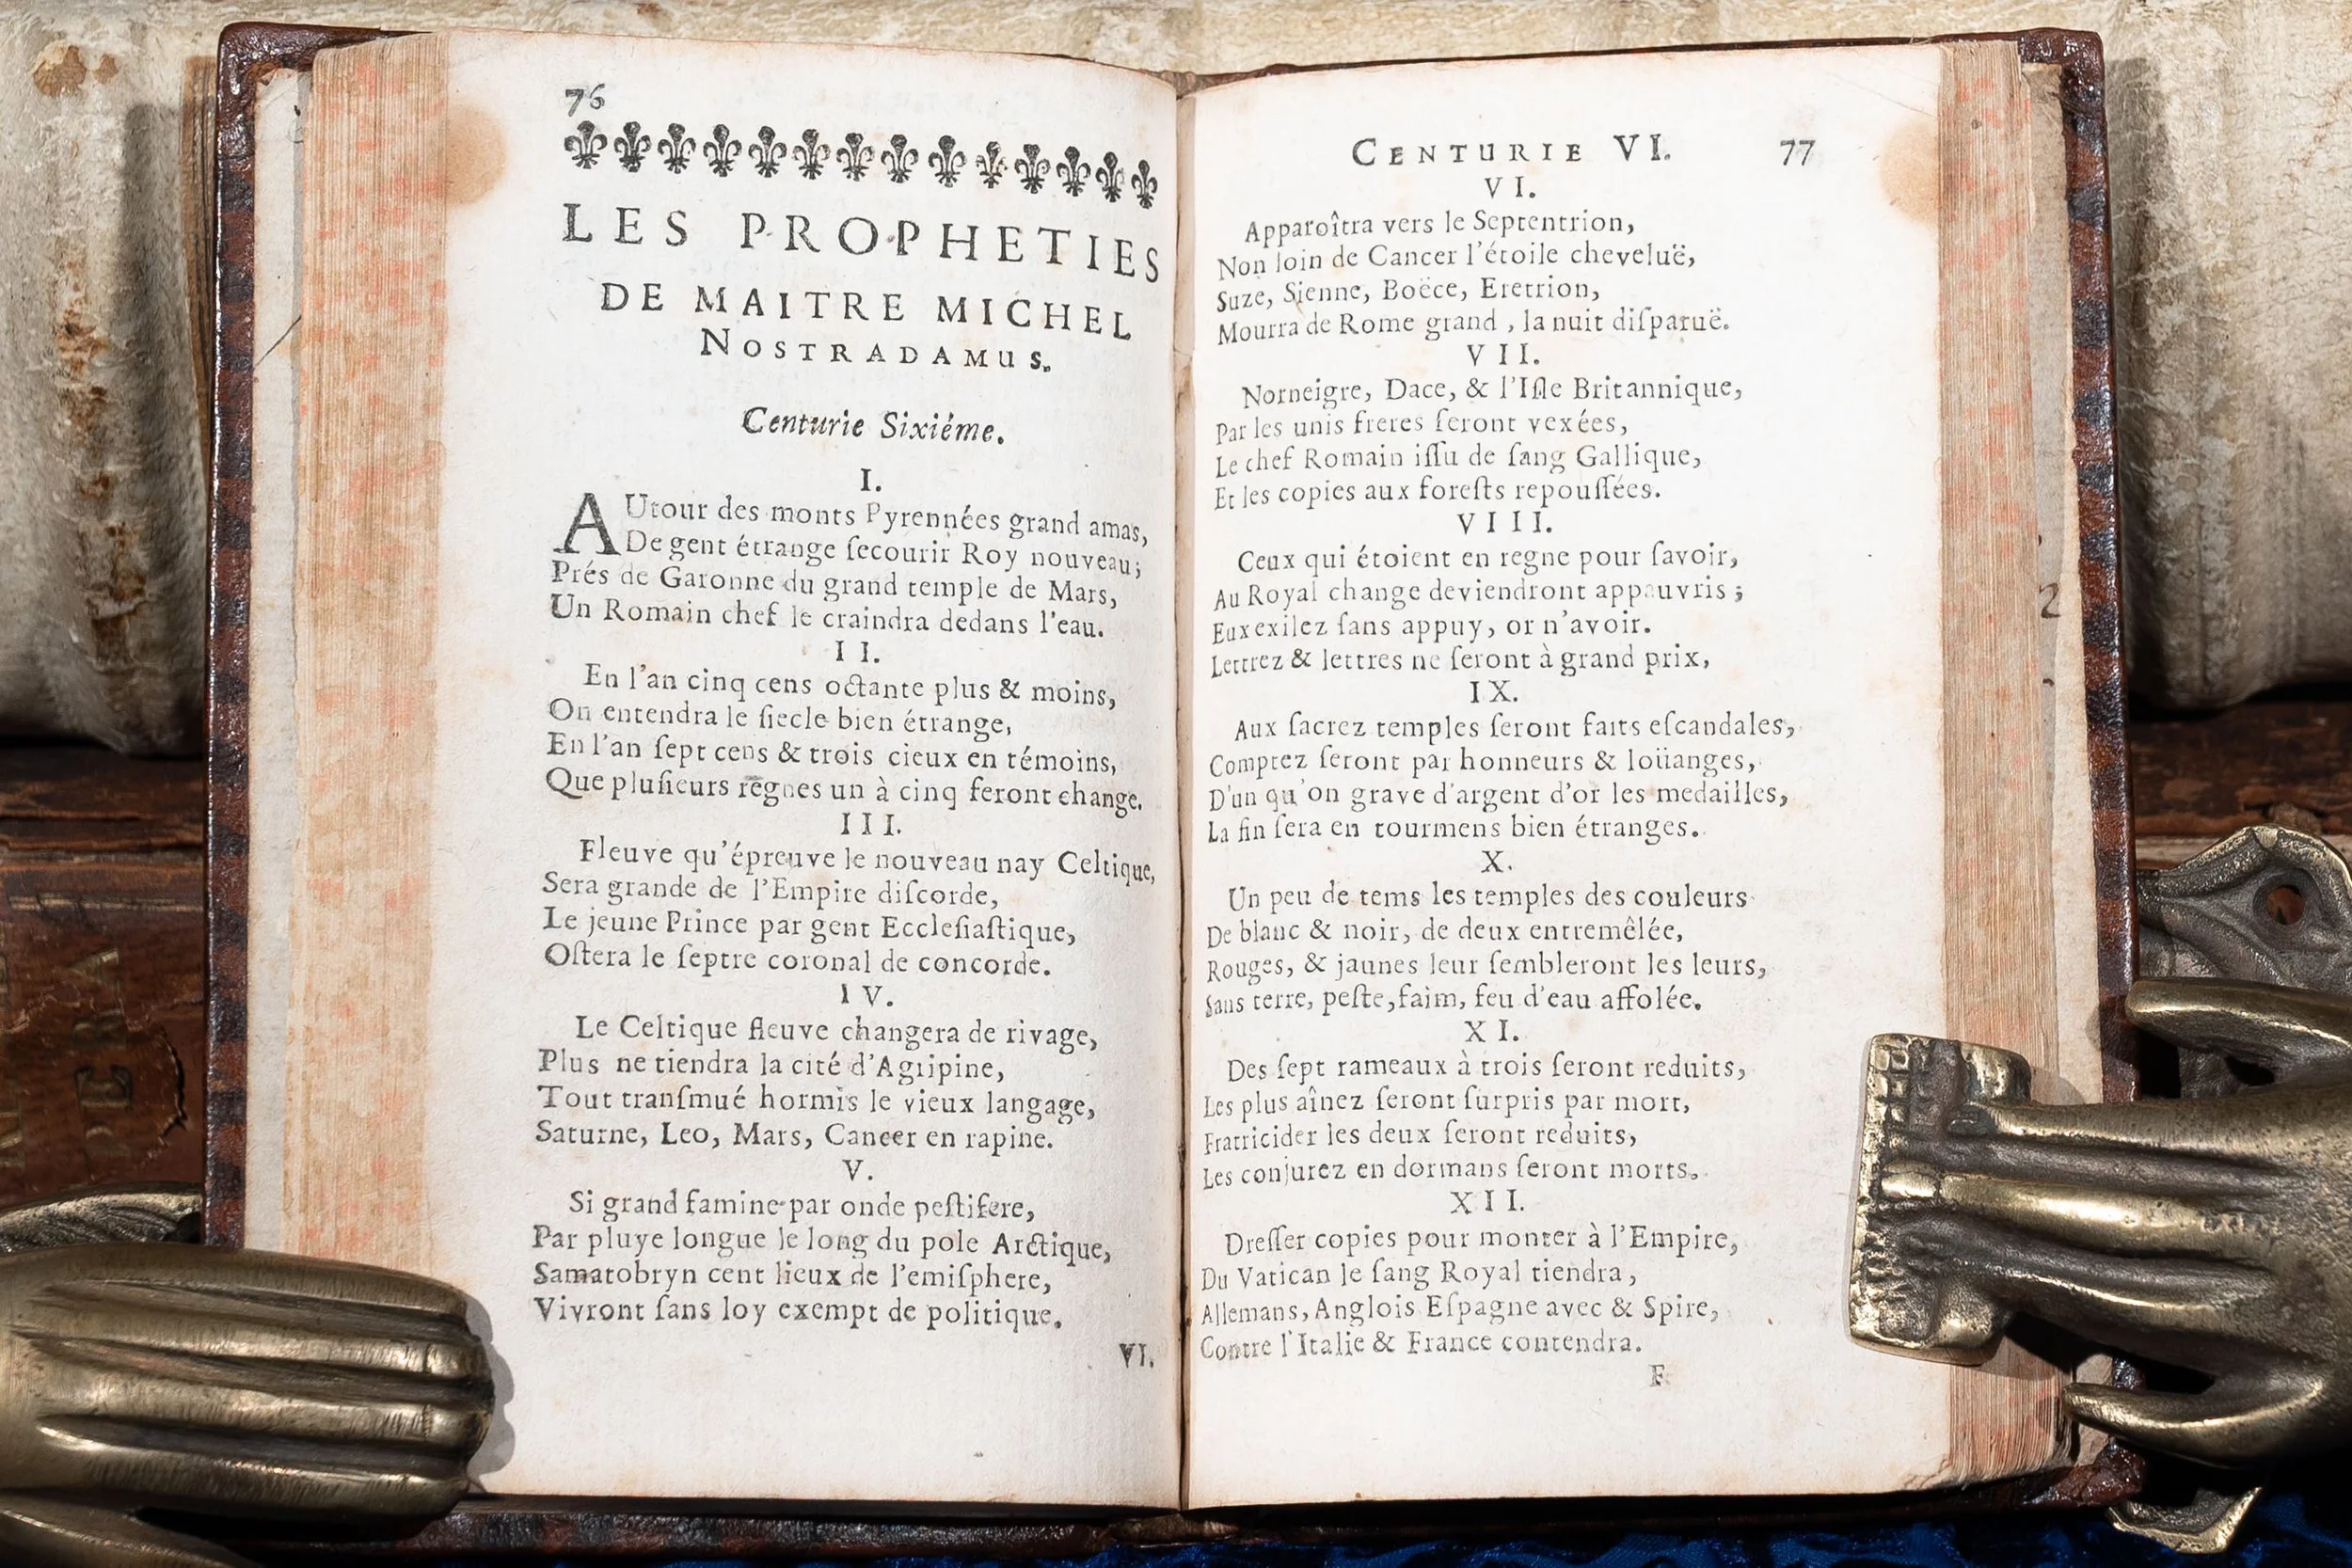 76
LES PROPHETIES
DE MAITRE MICHEL
NOSTRADAMUS.
Centurie Sixiéme.
I.
AUtour des monts Pyrennées grand amas,
De gent étrange ſecourir Roy nouveau;
Prés de Garonne du grand temple de Mars,
Un Romain chef le craindra dedans l'eau.
II.
En l'an cinq cens octante plus & moins,
On entendra le ſiecle bien étrange,
En l'an ſept cens & trois cieux en témoins,
Que pluſieurs regnes un à cinq feront change.
III.
Fleuve qu'épreuve le nouveau nay Celtique,
Sera grande de l'Empire diſcorde,
Le jeune Prince par gent Eccleſiaſtique,
Oſtera le ſeptre coronal de concorde.
IV.
Le Celtique fleuve changera de rivage,
Plus ne tiendra la cité d'Agripine,
Tout tranſmué hormis le vieux langage,
Saturne, Leo, Mars, Cancer en rapine.
V.
Si grand famine par onde peſtifere,
Par pluye longue le long du pole Arctique,
Samatobryn cent lieux de l'emiſphere,
Vivront ſans loy exempt de politique.
VI.
CENTURIE VI. 77
VI.
Apparoîtra vers le Septentrion,
Non loin de Cancer l'étoile cheveluë,
Suze, Sienne, Boëce, Eretrion,
Mourra de Rome grand, la nuit diſparuë.
VII.
Norneigre, Dace, & l'Iſle Britannique,
Par les unis freres ſeront vexées,
Le chef Romain iſſu de ſang Gallique,
Et les copies aux foreſts repouſſées.
VIII.
Ceux qui étoient en regne pour ſavoir,
Au Royal change deviendront appauvris;
Eux exilez ſans appuy, or n'avoir.
Lettrez & lettres ne ſeront à grand prix,
IX.
Aux ſacrez temples ſeront faits eſcandales,
Comptez ſeront par honneurs & loüanges,
D'un qu'on grave d'argent d'or les medailles,
La fin ſera en tourmens bien étranges.
X.
Un peu de tems les temples des couleurs
De blanc & noir, de deux entremêlée,
Rouges, & jaunes leur ſembleront les leurs,
Sans terre, peſte, faim, feu d'eau affolée.
XI.
Des ſept rameaux à trois ſeront reduits,
Les plus aînez ſeront ſurpris par mort,
Fratricider les deux ſeront reduits,
Les conjurez en dormans ſeront morts.
XII.
Dreſſer copies pour monter à l'Empire,
Du Vatican le ſang Royal tiendra,
Allemans, Anglois Eſpagne avec & Spire,
Contre l'Italie & France contendra.
F
2